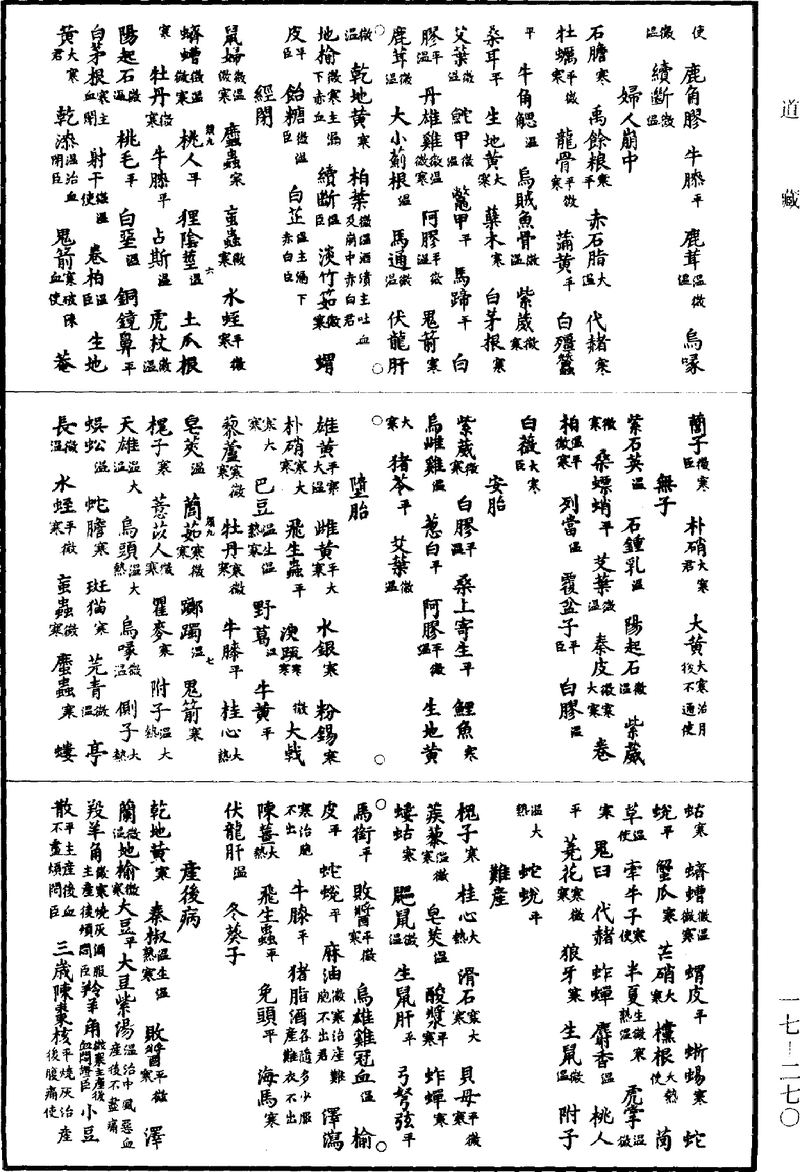 道藏
使 鹿角膠 牛膝平 鹿茸溫微溫 烏喙
微溫 續斷微溫
婦人崩中
石膽寒 禹餘粮寒平 赤石脂大溫 代赭寒
牡蠣平微寒 龍骨平微寒 蒲黃平 白殭蠶
平 牛角䚡溫 烏賊魚骨微溫 紫葳微寒
桑耳平 生地黃大寒 蘗木寒 白茅根寒
艾葉微溫 鮀甲微溫 鼈甲平 馬蹄平 白
膠平溫 丹雄雞微溫微寒 阿膠平微溫 鬼箭寒
鹿茸溫微溫 大小薊根溫 馬通微溫 伏龍肝
微溫 乾地黃寒 柏葉微溫酒漬主吐血及崩中赤白君
地榆微寒主漏下赤血 續斷微溫臣 淡竹茹微寒 蝟
皮平臣 飴糖微溫臣 白芷溫主漏下赤白臣
經閉
鼠婦微溫微寒 䗪蟲寒 蝱蟲微寒 水蛭平微寒
蠐螬微溫微寒 桃人平 狸陰莖溫 土瓜根
寒 牡丹寒微寒 牛膝平 占斯溫 虎杖微溫
陽起石微溫 桃毛平 白堊溫 銅鏡鼻平
白茅根寒主血閉 射干微溫使 卷柏溫臣 生地
黃大寒君 乾漆溫治血閉臣 鬼箭寒破陳血使 菴
䕡子微寒臣 朴硝大寒君 大黃大寒治月候不通使
無子
紫石英溫 石鍾乳溫 陽起石微溫 紫葳
微寒 桑螵蛸平 艾葉微溫 秦皮微寒大寒 卷
柏溫平微寒 列當溫 覆盆子平臣 白膠溫
白薇大寒臣
安胎
紫葳微寒 白膠平溫 桑上寄生平 鯉魚寒
烏雌雞溫 蔥白平 阿膠平微溫 生地黃
大寒 猪苓平 艾葉微溫
墮胎
雄黃平寒大溫 雌黃平寒大寒 水銀寒 粉錫寒
朴硝寒大寒 飛生蟲平 溲疏寒微寒 大戟
寒大寒 巴豆溫生溫熱寒 野葛溫 牛黃平
藜蘆寒微寒 牡丹寒微寒 牛膝平 桂心大熱
皂莢溫 䕡茹寒微寒 躑躅溫 鬼箭寒
槐子寒 薏苡人微寒 瞿麥寒 附子溫大熱
天雄溫大溫 烏頭溫大熱 烏喙微溫 側子大熱
蜈蚣溫 蛇膽寒 斑猫寒 芫青微溫 亭
長微溫 水蛭平微寒 蝱蟲微寒 䗪蟲寒 螻
蛄寒 蠐螬微溫微寒 蝟皮平 蜥蜴寒 蛇
蛻平 蟹爪寒 芒硝大寒 欓根大熱使 茵
草溫使 牽牛子寒使 半夏生微寒熟溫 虎掌溫微溫
寒 鬼臼 代赭 蚱蟬 麝香溫 桃人
平 蕘花寒微寒 狼牙寒 生鼠微溫 附子
溫大熱 蛇蛻平
難產
槐子寒 桂心大熱 滑石寒大寒 貝母平微寒
蒺藜溫微寒 皂莢溫 酸漿平寒 蚱蟬寒
螻蛄寒 鼺鼠微溫 生鼠肝平 弓弩弦平
馬銜平 敗醬平微寒 烏雄雞冠血溫 榆
皮平 蛇蛻平 麻油微寒治產難胞不出君 澤瀉
寒治胞不出 牛膝平 猪脂酒各隨多少服產難衣不出
陳薑大熱 飛生蟲平 兔頭平 海馬寒
伏龍肝溫 冬葵子
產後病
乾地黃寒 秦椒溫生溫熟寒 敗醬平微寒 澤
蘭微溫 地榆微寒 大豆平 大豆紫湯溫治中風惡血產後不盡痛
羖羊角微寒燒灰酒服主產後煩悶臣 羚羊角微寒主產後血悶臣 小豆
散平主產後血不盡煩悶臣 三歲陳棗核平燒灰治產後腹痛使
一七—二七〇